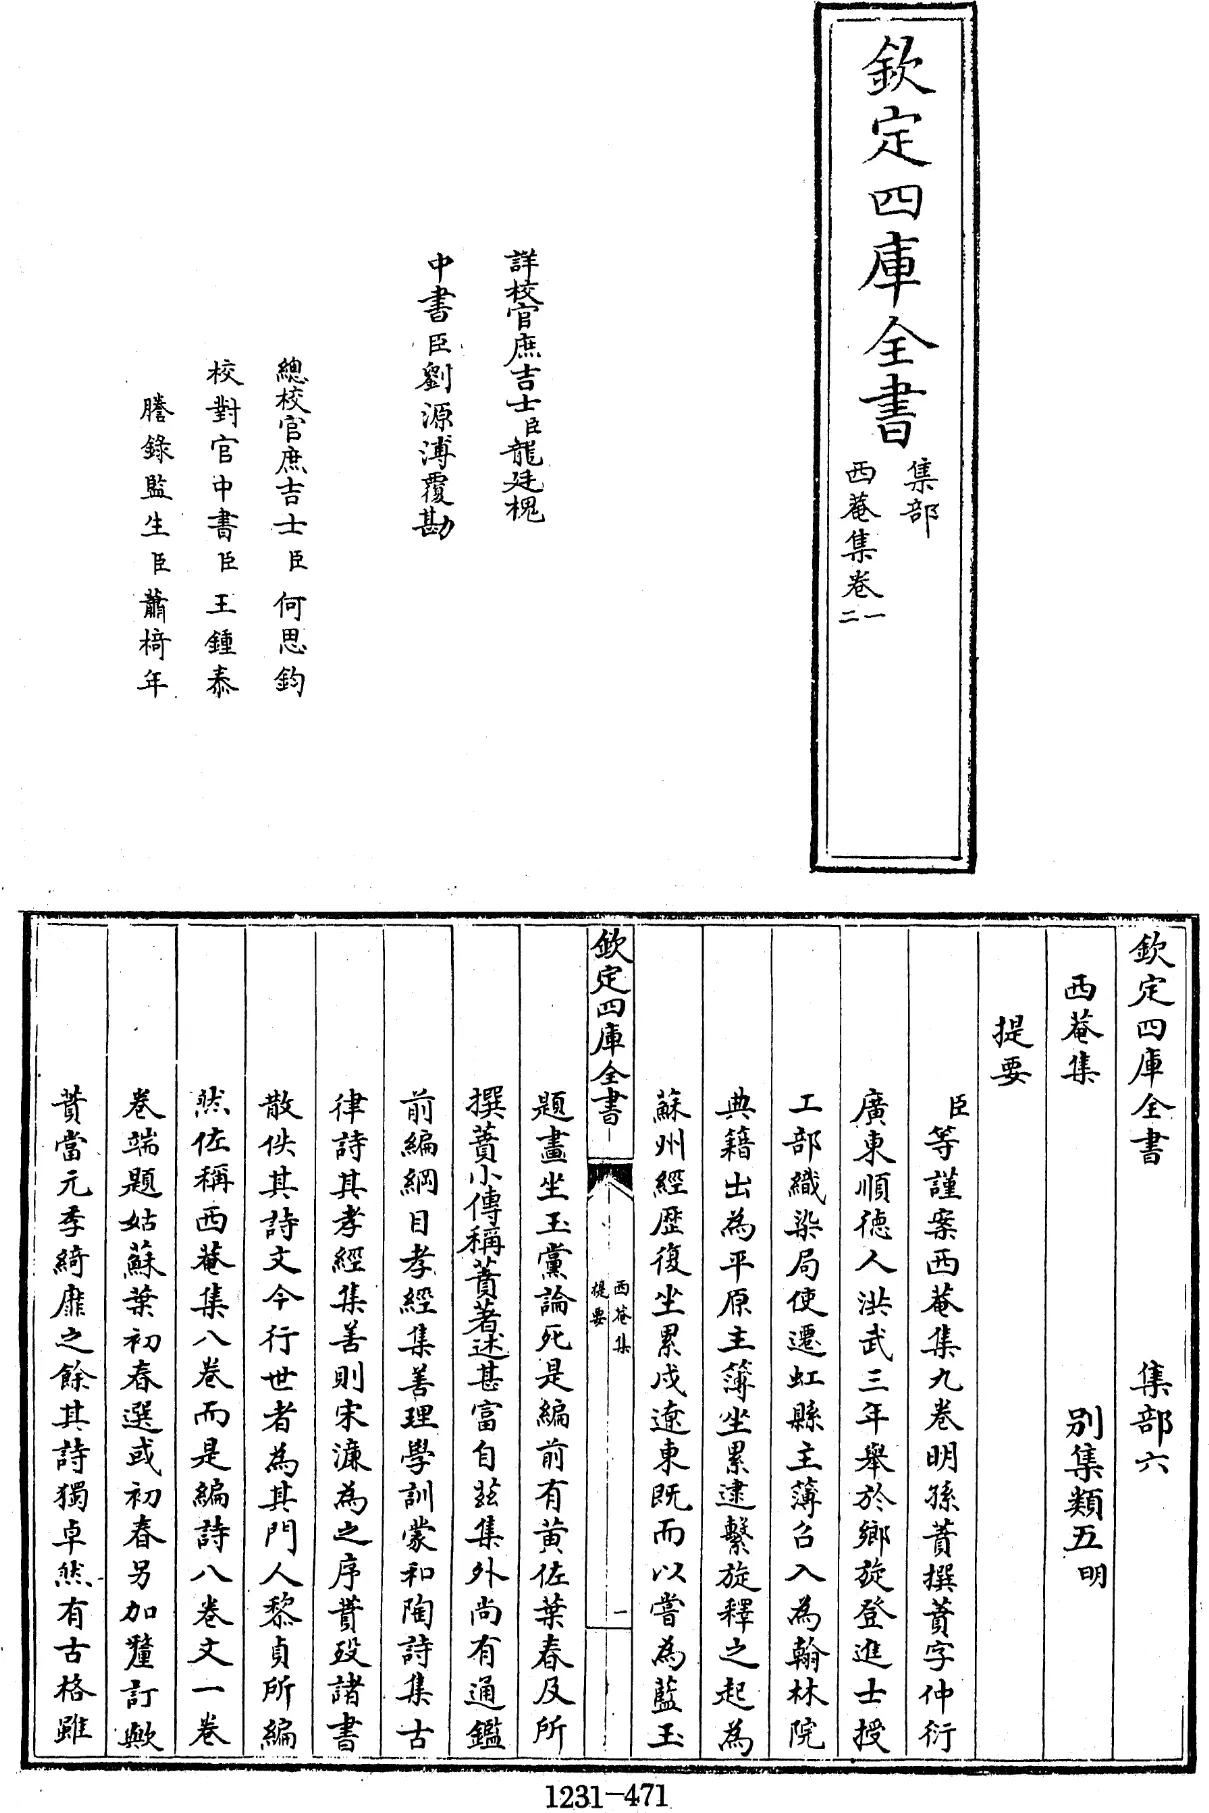 欽定四庫全書
集部
西菴集卷一
二
詳校官庶吉士臣龍廷槐
中書臣劉源溥覆勘
總校官庶吉士臣何思鈞
校對官中書臣王鍾泰
謄錄監生臣蕭椅年
欽定四庫全書 集部六
西菴集 別集類五明
提要
臣等謹案西菴集九卷明孫蕡撰蕡字仲衍
廣東順德人洪武三年舉於鄉旋登進士授
工部織染局使遷虹縣主簿召入為翰林院
典籍出為平原主簿坐累逮繫旋釋之起為
蘇州經歷復坐累戍遼東既而以嘗為藍玉
欽定四庫全書
西菴集
提要
一
題畫坐玉黨論死是編前有黄佐葉春及所
撰蕡小傳稱蕡著述甚富自兹集外尚有通鑑
前編綱目孝經集善理學訓蒙和陶詩集古
律詩其孝經集善則宋濂為之序蕡歿諸書
散佚其詩文今行世者為其門人黎貞所編
然佐稱西菴集八卷而是編詩八卷文一卷
卷端題姑蘇葉初春選或初春另加釐訂歟
蕡當元季綺靡之餘其詩獨卓然有古格雖
1231-471